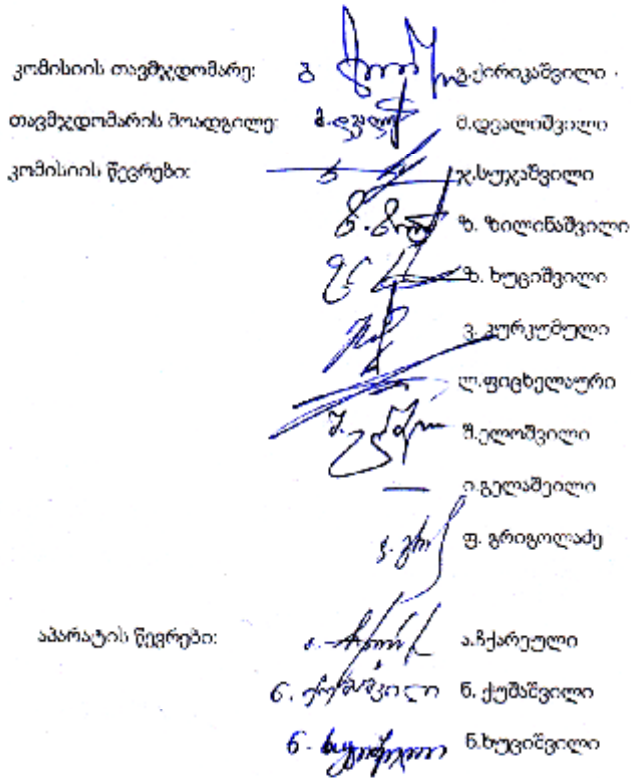 კომისიის თავმჯდომარე: გ.ქირიკაშვილი
თავმჯდომარის მოადგილე: მ.დვალიშვილი
კომისიის წევრები: ჯ.სუჯაშვილი
ზ. ზილინაშვილი
ზ. ხუციშვილი
ვ. კურკუმული
ლ.ფიცხელაური
შ.ელოშვილი
ი.გელაშვილი
ფ. გრიგოლაძე
აპარატის წევრები: ა.ჩქარეული
ნ. ქუშაშვილი
ნ.ხუციშვილი